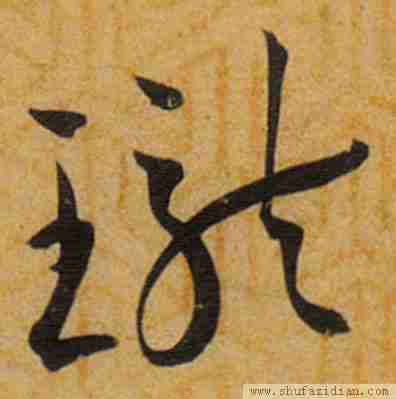 瓏
www.shufazidian.com